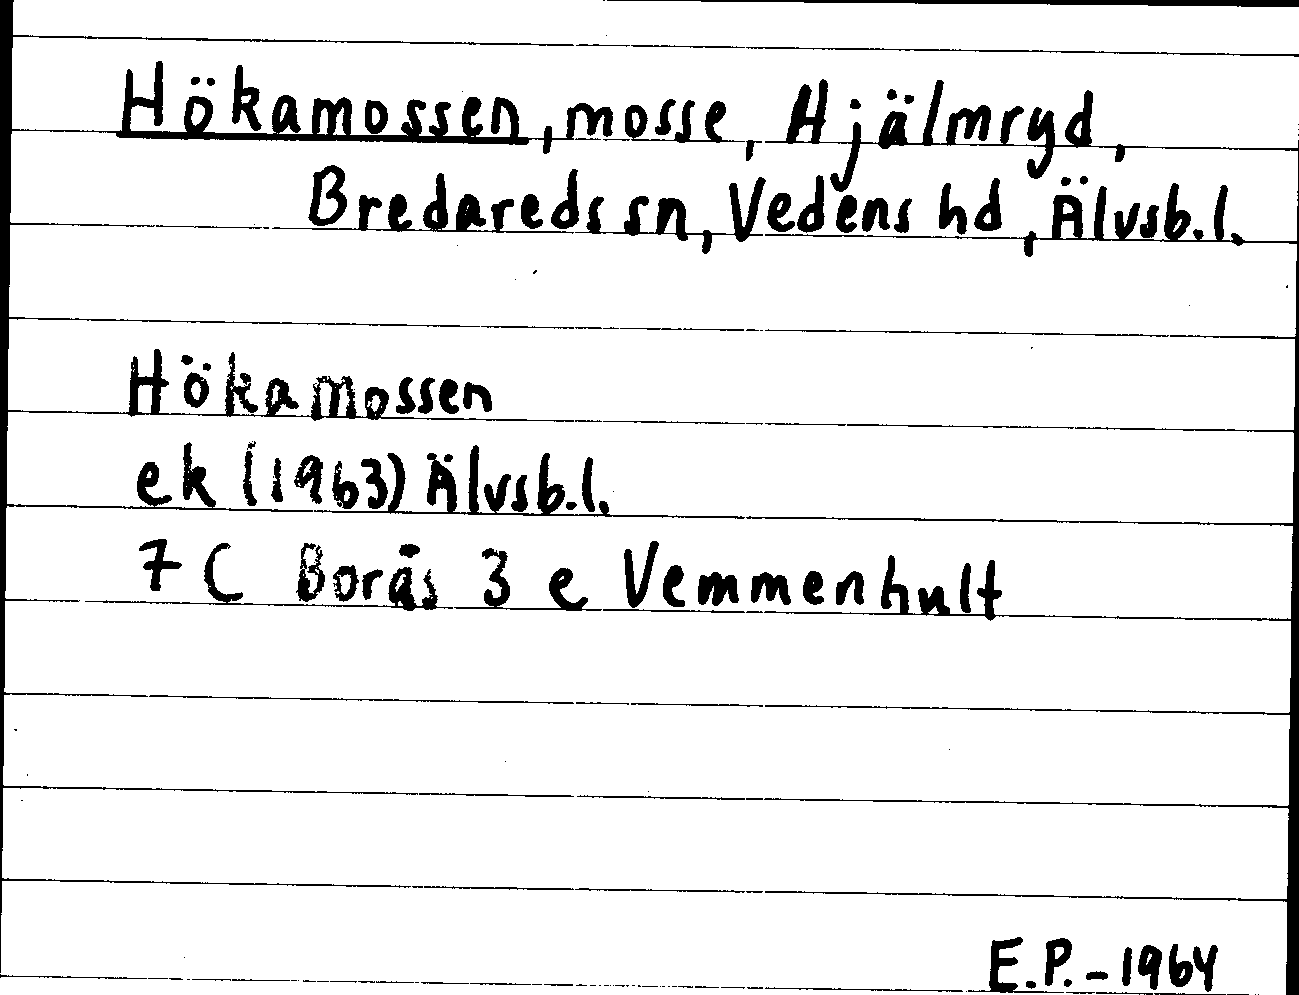 Hökamossen, mosse, Hjälmryd,
Bredareds sn, Vedens hd, Älvsb.l.
Hökamossen
ek (1963) Älvsb.l.
7 C Borås 3 e Vemmenhult
E.P.-1964